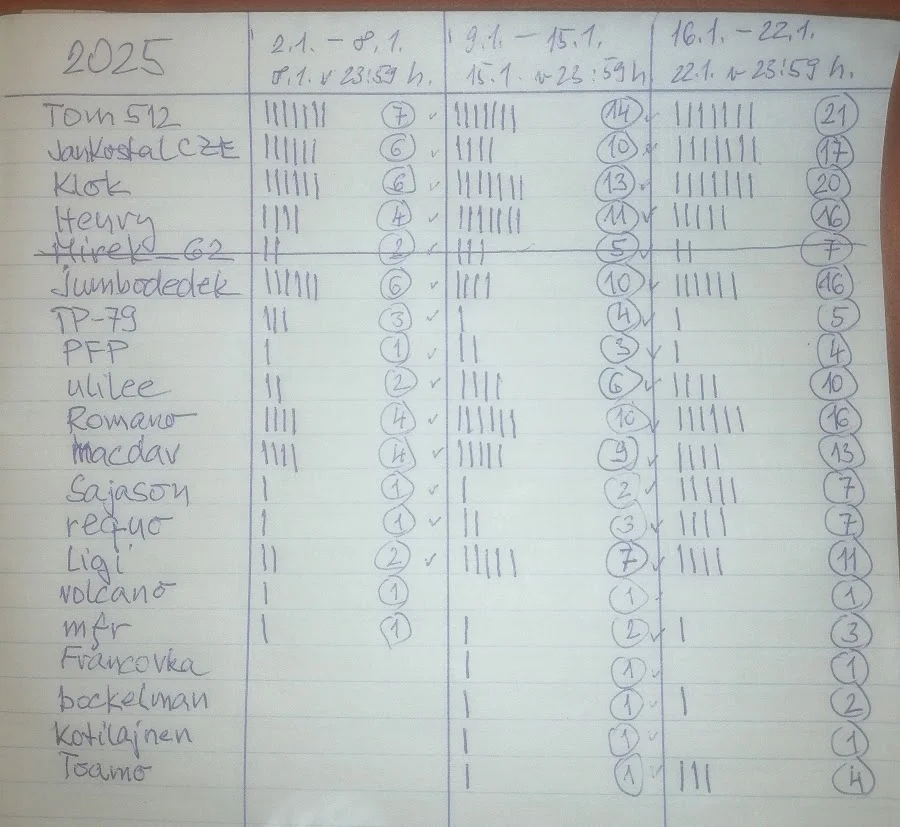 2025 2.1. – 8.1. 9.1. – 15.1. 16.1. – 22.1.
8.1. v 23:59 h. 15.1. v 23:59 h. 22.1. v 23:59 h.
Tom512 ||||||| 7 ✓ ||||||| 14 ✓ ||||||| 21
JanKostalCZE |||||| 6 ✓ |||| 10 ✓ ||||||| 17
Klok |||||| 6 ✓ ||||||| 13 ✓ ||||||| 20
Henry |||| 4 ✓ ||||||| 11 ✓ ||||| 16
Mirek_62 || 2 ✓ ||| 5 ✓ || 7
Jumbodedek |||||| 6 ✓ |||| 10 ✓ |||||| 16
TP-79 ||| 3 ✓ | 4 ✓ | 5
PFP | 1 ✓ || 3 ✓ | 4
ulilee || 2 ✓ |||| 6 ✓ |||| 10
Romano |||| 4 ✓ |||||| 10 ✓ |||||| 16
macdav |||| 4 ✓ ||||| 9 ✓ |||| 13
Sajason | 1 ✓ | 2 ✓ ||||| 7
requo | 1 ✓ || 3 ✓ |||| 7
Ligi || 2 ✓ ||||| 7 ✓ |||| 11
volcano | 1 1 ✓ 1
mfr | 1 | 2 ✓ | 3
Francovka | 1 ✓ 1
bockelman | 1 ✓ | 2
Kotilajnen | 1 ✓ 1
Toamo | 1 ✓ ||| 4